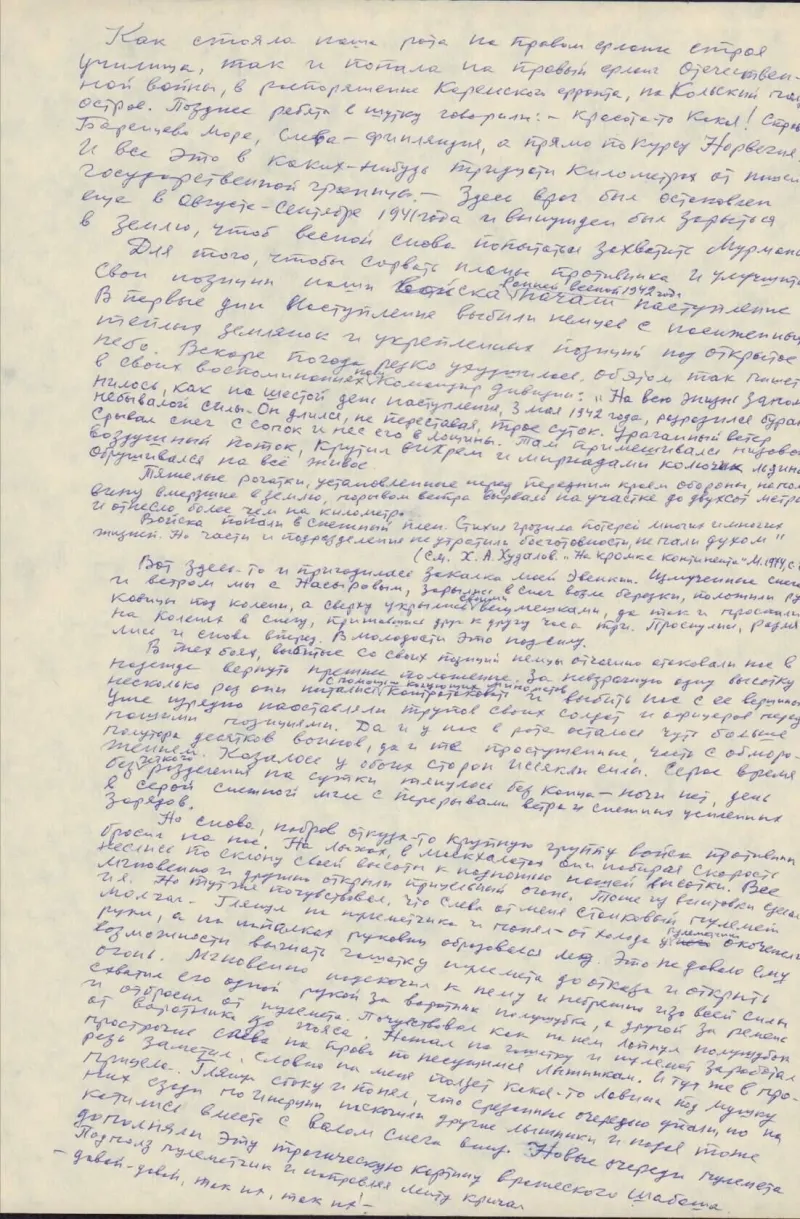 Как стояла наша рота на правом фланге строя
училища, так и попала на правый фланг Отечествен-
ной войны, в распоряжение Карельского фронта, на Кольский пол
остров. Позднее ребята в шутку говорили: – красота-то какая! Справ
Баренцево море, Слева – Финляндия, а прямо по курсу Норвегия.
И все это в каких-нибудь тридцати километрах от нашей
государственной границы. – Здесь враг был остановлен
еще в августе-сентябре 1941 года и вынужден был зарыться
в землю, чтоб весной снова попытаться захватить Мурманс
Для того, чтобы сорвать планы противника и улучшить
свои позиции наши войска ранней весной 1942 года начали наступление
В первые дни наступления выбили немцев с насиженных
теплых землянок и укрепленных позиций под открытое
небо. Вскоре погода резко ухудшилась. Об этом так пишет
в своих воспоминаниях наш командир дивизии: "На всю жизнь запом
нилось, как на шестой день наступления, 3 мая 1942 года, разразился буран
небывалой силы. Он длился, не переставая, трое суток. Ураганный ветер
срывал снег с сопок и нес его в лощины. Там примешивался низовой
воздушный поток, крутил вихрем и мириадами колючих льдинок
обрушивался на всё живое.
Тяжелые рогатки, установленные перед передним краем обороны, напол
вину вмерзшие в землю, порывом ветра вырвало на участке до двухсот метро
и отнесло более чем на километр.
Войска попали в снежный плен. Стихия грозила потерей многих и многих
жизней. Но части и подразделения не утратили боеготовности, не пали духом"
(см. Х. А. Худалов. "На кромке континента" М. 1974, с.
Вот здесь-то и пригодилась закалка моей Эвенкии. Измученные снегом
и ветром мы с Насыровым, зарылись в снег возле березки, положили ру
кавицы под колени, а сверху укрылись своими вещмешками, да так и проспали
на коленях в снегу, прижавшись друг к другу часа три. Проснулись, размя
лись и снова вперед. В молодости это под силу.
В тех боях, выбитые со своих позиций немцы отчаянно атаковали нас в
надежде вернуть прежнее положение. За невзрачную одну высотку
несколько раз они пытались с помощью минометов контратаковать и выбить нас с ее вершины
Уже изрядно наоставляли трупов своих солдат и офицеров перед
нашими позициями. Да и у нас в роте осталось чуть больше
полутора десятков воинов, да и те простуженные, часть с обморо-
жением. Казалось у обоих сторон иссякли силы. Серое время
без всякого разделения на сутки тянулось без конца – ночи нет, день
в серой снежной мгле с перерывами ветра и снежных усиленных
зарядов.
Но снова, набрав откуда-то крупную группу войск противник
бросил на нас. На лыжах, в маскхалатах они набирая скорость
неслись по склону своей высоты к подножию нашей высотки. Все
мгновенно и дружно открыли прицельный огонь. Тоже из винтовки сделал
и я. Но тут же почувствовал, что слева от меня станковый пулемет
молчал. Глянул на пулеметчика и понял – от холода у пулеметчика окоченели
руки, а на рукавиц образовался лед. Это не давало ему
возможности выжать гашетку пулемета до отказа и открыть
огонь. Мгновенно подскочил к нему и изо всей силы
схватил его одной рукой за воротник полушубка, а другой за ремень
и отбросил от пулемета. Почувствовал как на нем лопнул полушубок
от воротника до пояса. Нажал на гашетку и пулемет заработал
прострочив слева на право по несущимся лыжникам. И тут же в про-
резь заметил, словно на меня ползет какая-то лавина под мушку
прицела. Глянул сбоку и понял, что срезанные очередью упали, но на
них сзади по инерции наскочили другие лыжники и падая тоже
катились вместе с валом снега вниз. Новые очереди пулемета
дополняли эту трагическую картину вражеского шабаша.
Подполз пулеметчик и поправляя ленту кричал
– давай-давай, так их, так их! –